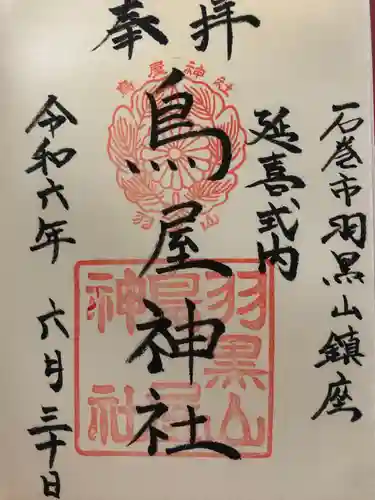 奉拝
石巻市羽黒山鎮座
延喜式内
鳥屋神社
令和六年 六月三十日
鳥屋神社
羽黒山
鳥屋
神社